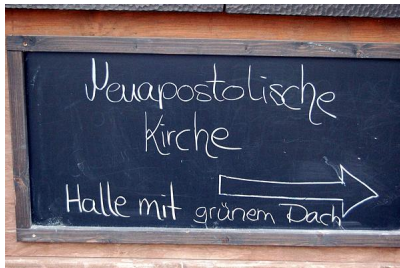 Neuapostolische
Kirche
Halle mit grünem Dach